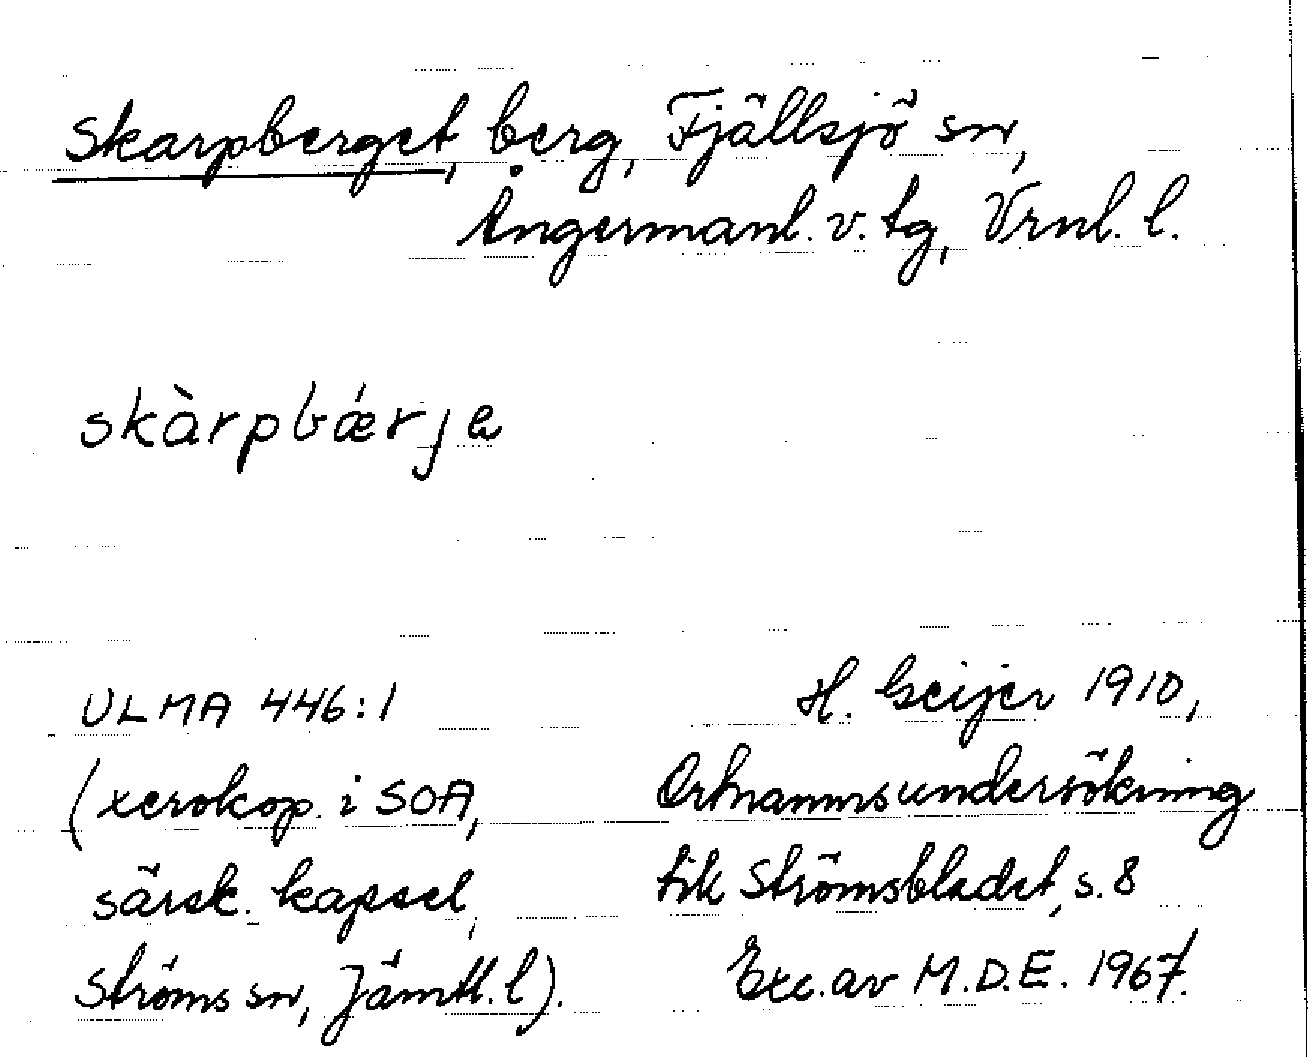 Skarpberget, berg, Fjällsjö sn,
Ångermanl. v. tg, Vrnl. l.
skàrpbǽrje
ULMA 446:1
(xerokop. i SOA,
särsk. kapsel,
Ströms sn, Jämtl. l).
H. Geijer 1910,
Ortnamnsundersökning
till Strömsbladet, s. 8
Exc. av M.D.E. 1967.